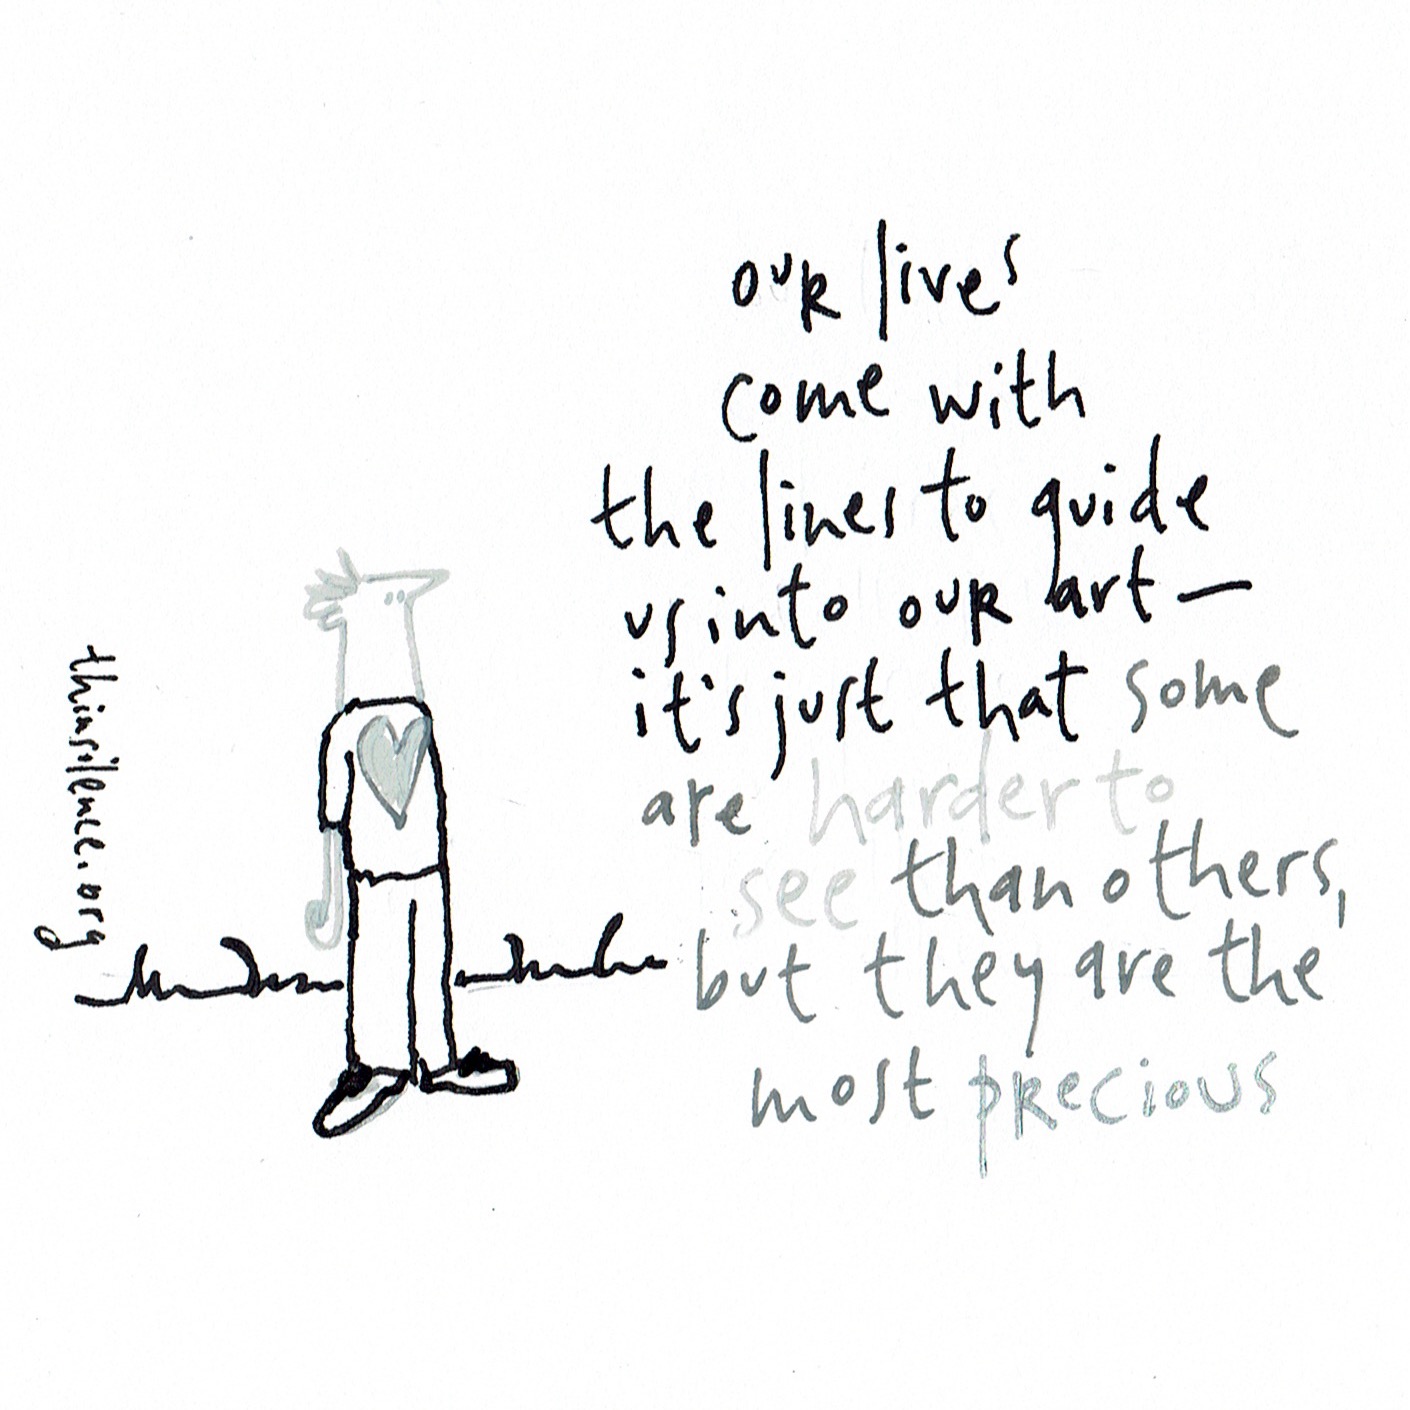 our lives
come with
the lines to guide
us into our art—
it's just that some
are harder to
see than others,
but they are the
most precious
thinsilence.org